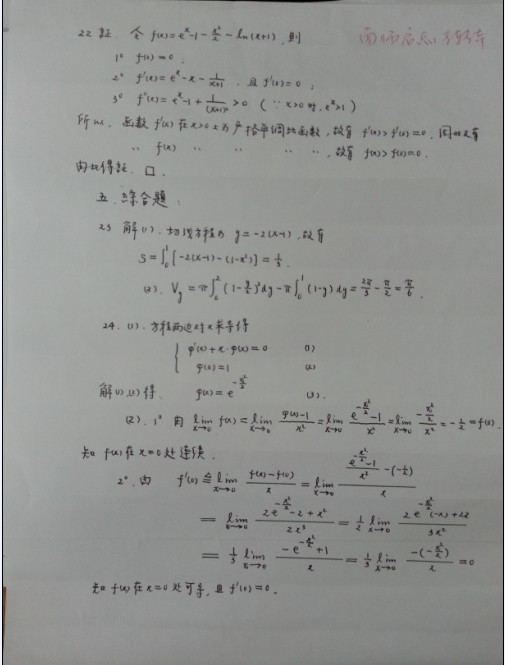 22 证. 令 f(x)=e^x-1-x²/2-ln(x+1), 则
1° f(0)=0;
2° f'(x)=e^x-x-1/(x+1), 且 f'(0)=0;
3° f''(x)=e^x-1+1/(x+1)²>0 (∵x>0时, e^x>1)
所以, 函数 f'(x) 在x>0上为严格单调函数, 故有 f'(x)>f'(0)=0, 同时又有
" f(x) " " " ", 故有 f(x)>f(0)=0.
由此得证. □.
五. 综合题:
23 解 (1). 切线方程为 y=-2(x-1), 故有
S=∫₀¹[-2(x-1)-(1-x²)]=1/3.
(2). V_y=π∫₀²(1-y/2)²dy-π∫₀¹(1-y)dy=2π/3-π/2=π/6.
24. (1). 方程两边对x求导得
φ'(x)+x·φ(x)=0 (1)
φ(0)=1 (2)
解(1),(2)得. φ(x)=e^(-x²/2) (3).
(2). 1° 由 lim x→0 f(x)=lim x→0 (φ(x)-1)/x²=lim x→0 (e^(-x²/2)-1)/x²=lim x→0 (-x²/2)/x²=-1/2=f(0).
知 f(x)在x=0处连续.
2°. 由 f'(0)≙lim x→0 (f(x)-f(0))/x=lim x→0 ((e^(-x²/2)-1)/x²-(-1/2))/x
=lim x→0 (2e^(-x²/2)-2+x²)/2x³=1/2 lim x→0 (2e^(-x²/2)(-x)+2x)/3x²
=1/3 lim x→0 (-e^(-x²/2)+1)/x=1/3 lim x→0 (-(-x²/2))/x=0
知 f(x)在x=0处可导, 且 f'(0)=0.